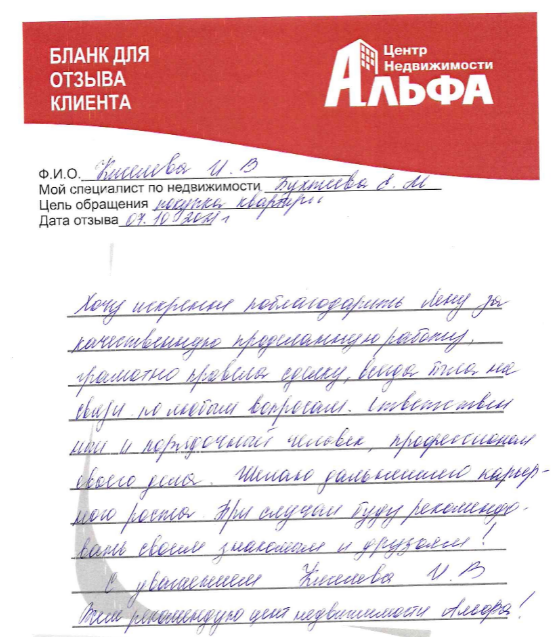 БЛАНК ДЛЯ
ОТЗЫВА
КЛИЕНТА
Центр
Недвижимости
АЛЬФА
Ф.И.О. Киселева И. В
Мой специалист по недвижимости Е. М
Цель обращения покупка квартиры
Дата отзыва 07.10 г
Хочу искрение поблагодарить Лену за
качественную проделанную работу.
грамотно провела сделку, всегда была на
связи по любым вопросам. Ответствен
ный и порядочный человек, профессионал
своего дела. Желаю дальнейшего карьер-
ного роста. При случаи буду рекомендо-
вать своим знакомым и друзьям!
С уважением Киселева И. В
Всем рекомендую цент недвижимости Альфа!